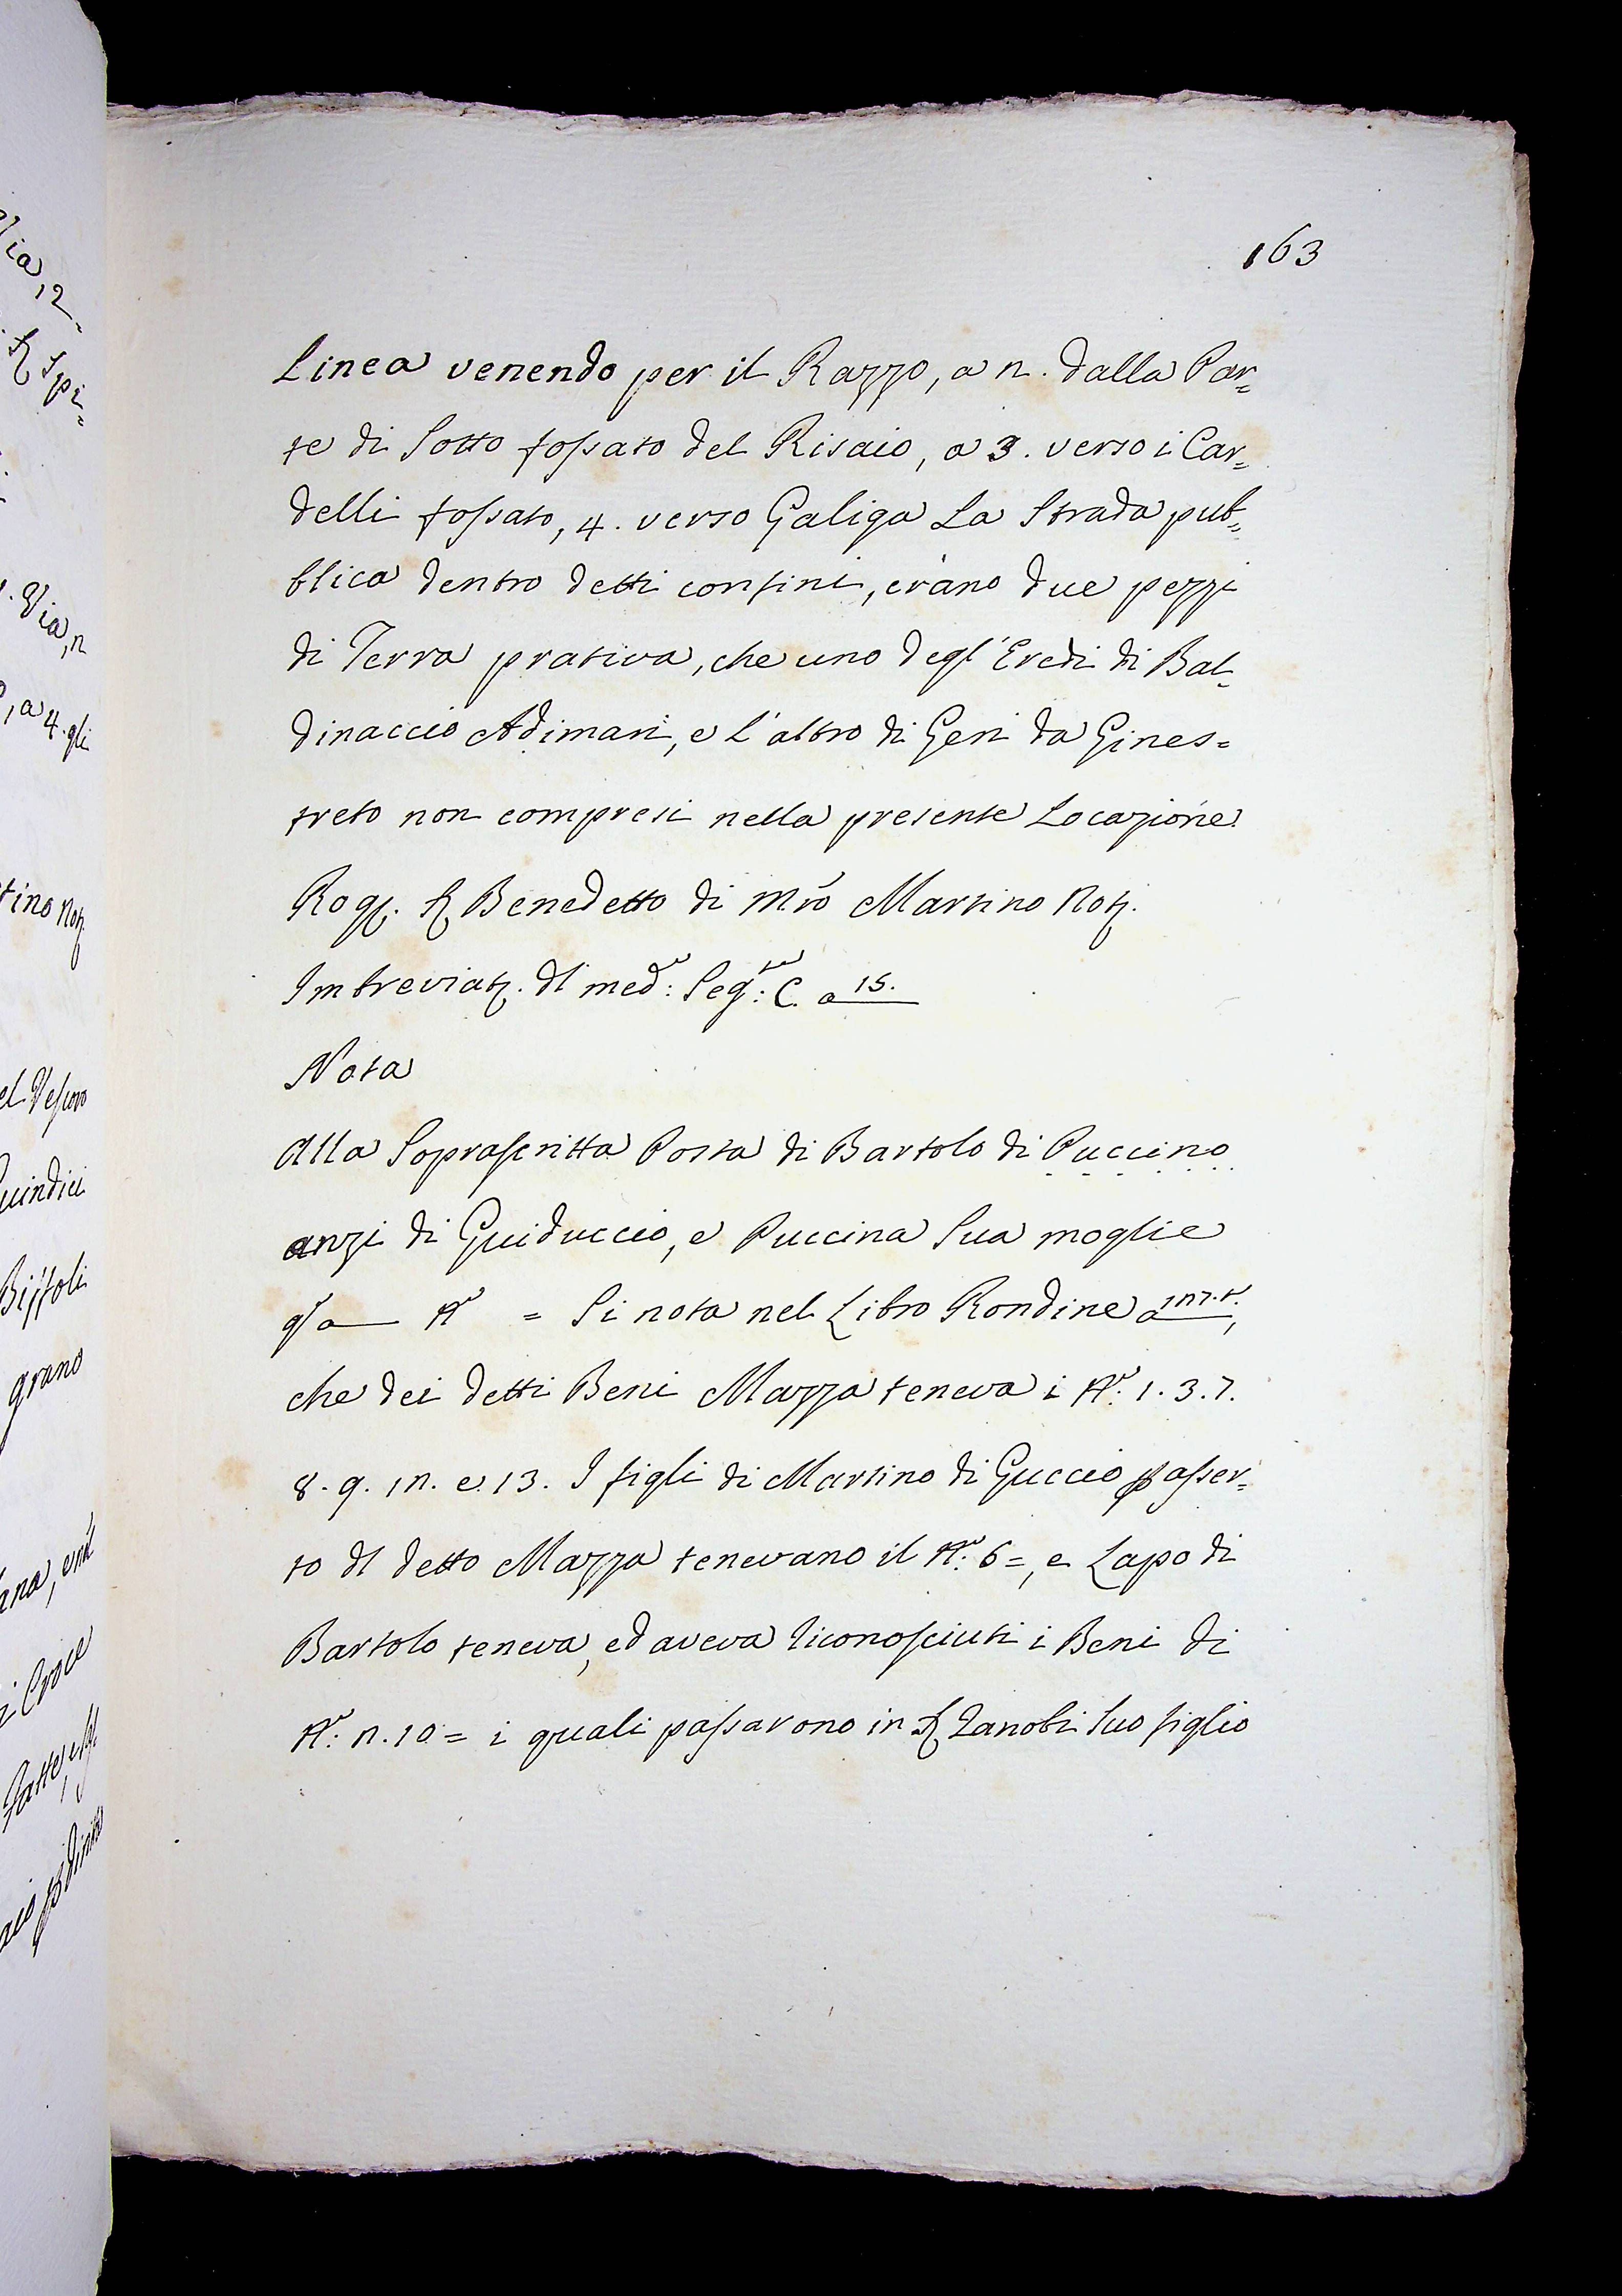 163
Linea venendo per il Razzo, a n. dalla Par=
te di Sotto fossato del Risaio, a 3. verso i Car=
delli fossato, 4. verso Galiga La Strada pub=
blica dentro detti confini, erano due pezzi
di Terra prativa, che uno degl'Eredi di Bal=
dinaccio Adimari, e l'altro di Geri da Gines=
treto non compresi nella presente Locazione
Rog. Benedetto di Mro Martino Not.
Imbreviat. dl med: Seg: C. a 15.
Nota
Alla Soprascritta Posta di Bartolo di Puccino
anzi di Guiduccio, e Puccina Sua moglie
qta = Si nota nel Libro Rondine a
che dei detti Beni Mazza teneva i No: 1. 3. 7.
8. 9. 1n. e 13. I figli di Martino di Guccio passer=
to dl detto Mazza tenevano il No: 6=, e Lapo di
Bartolo teneva, ed aveva riconosciuti i Beni di
No: n. 10 = i quali passarono in Zanobi Suo figlio
tino Not.
el Vescov
uindici
grano
i Croce